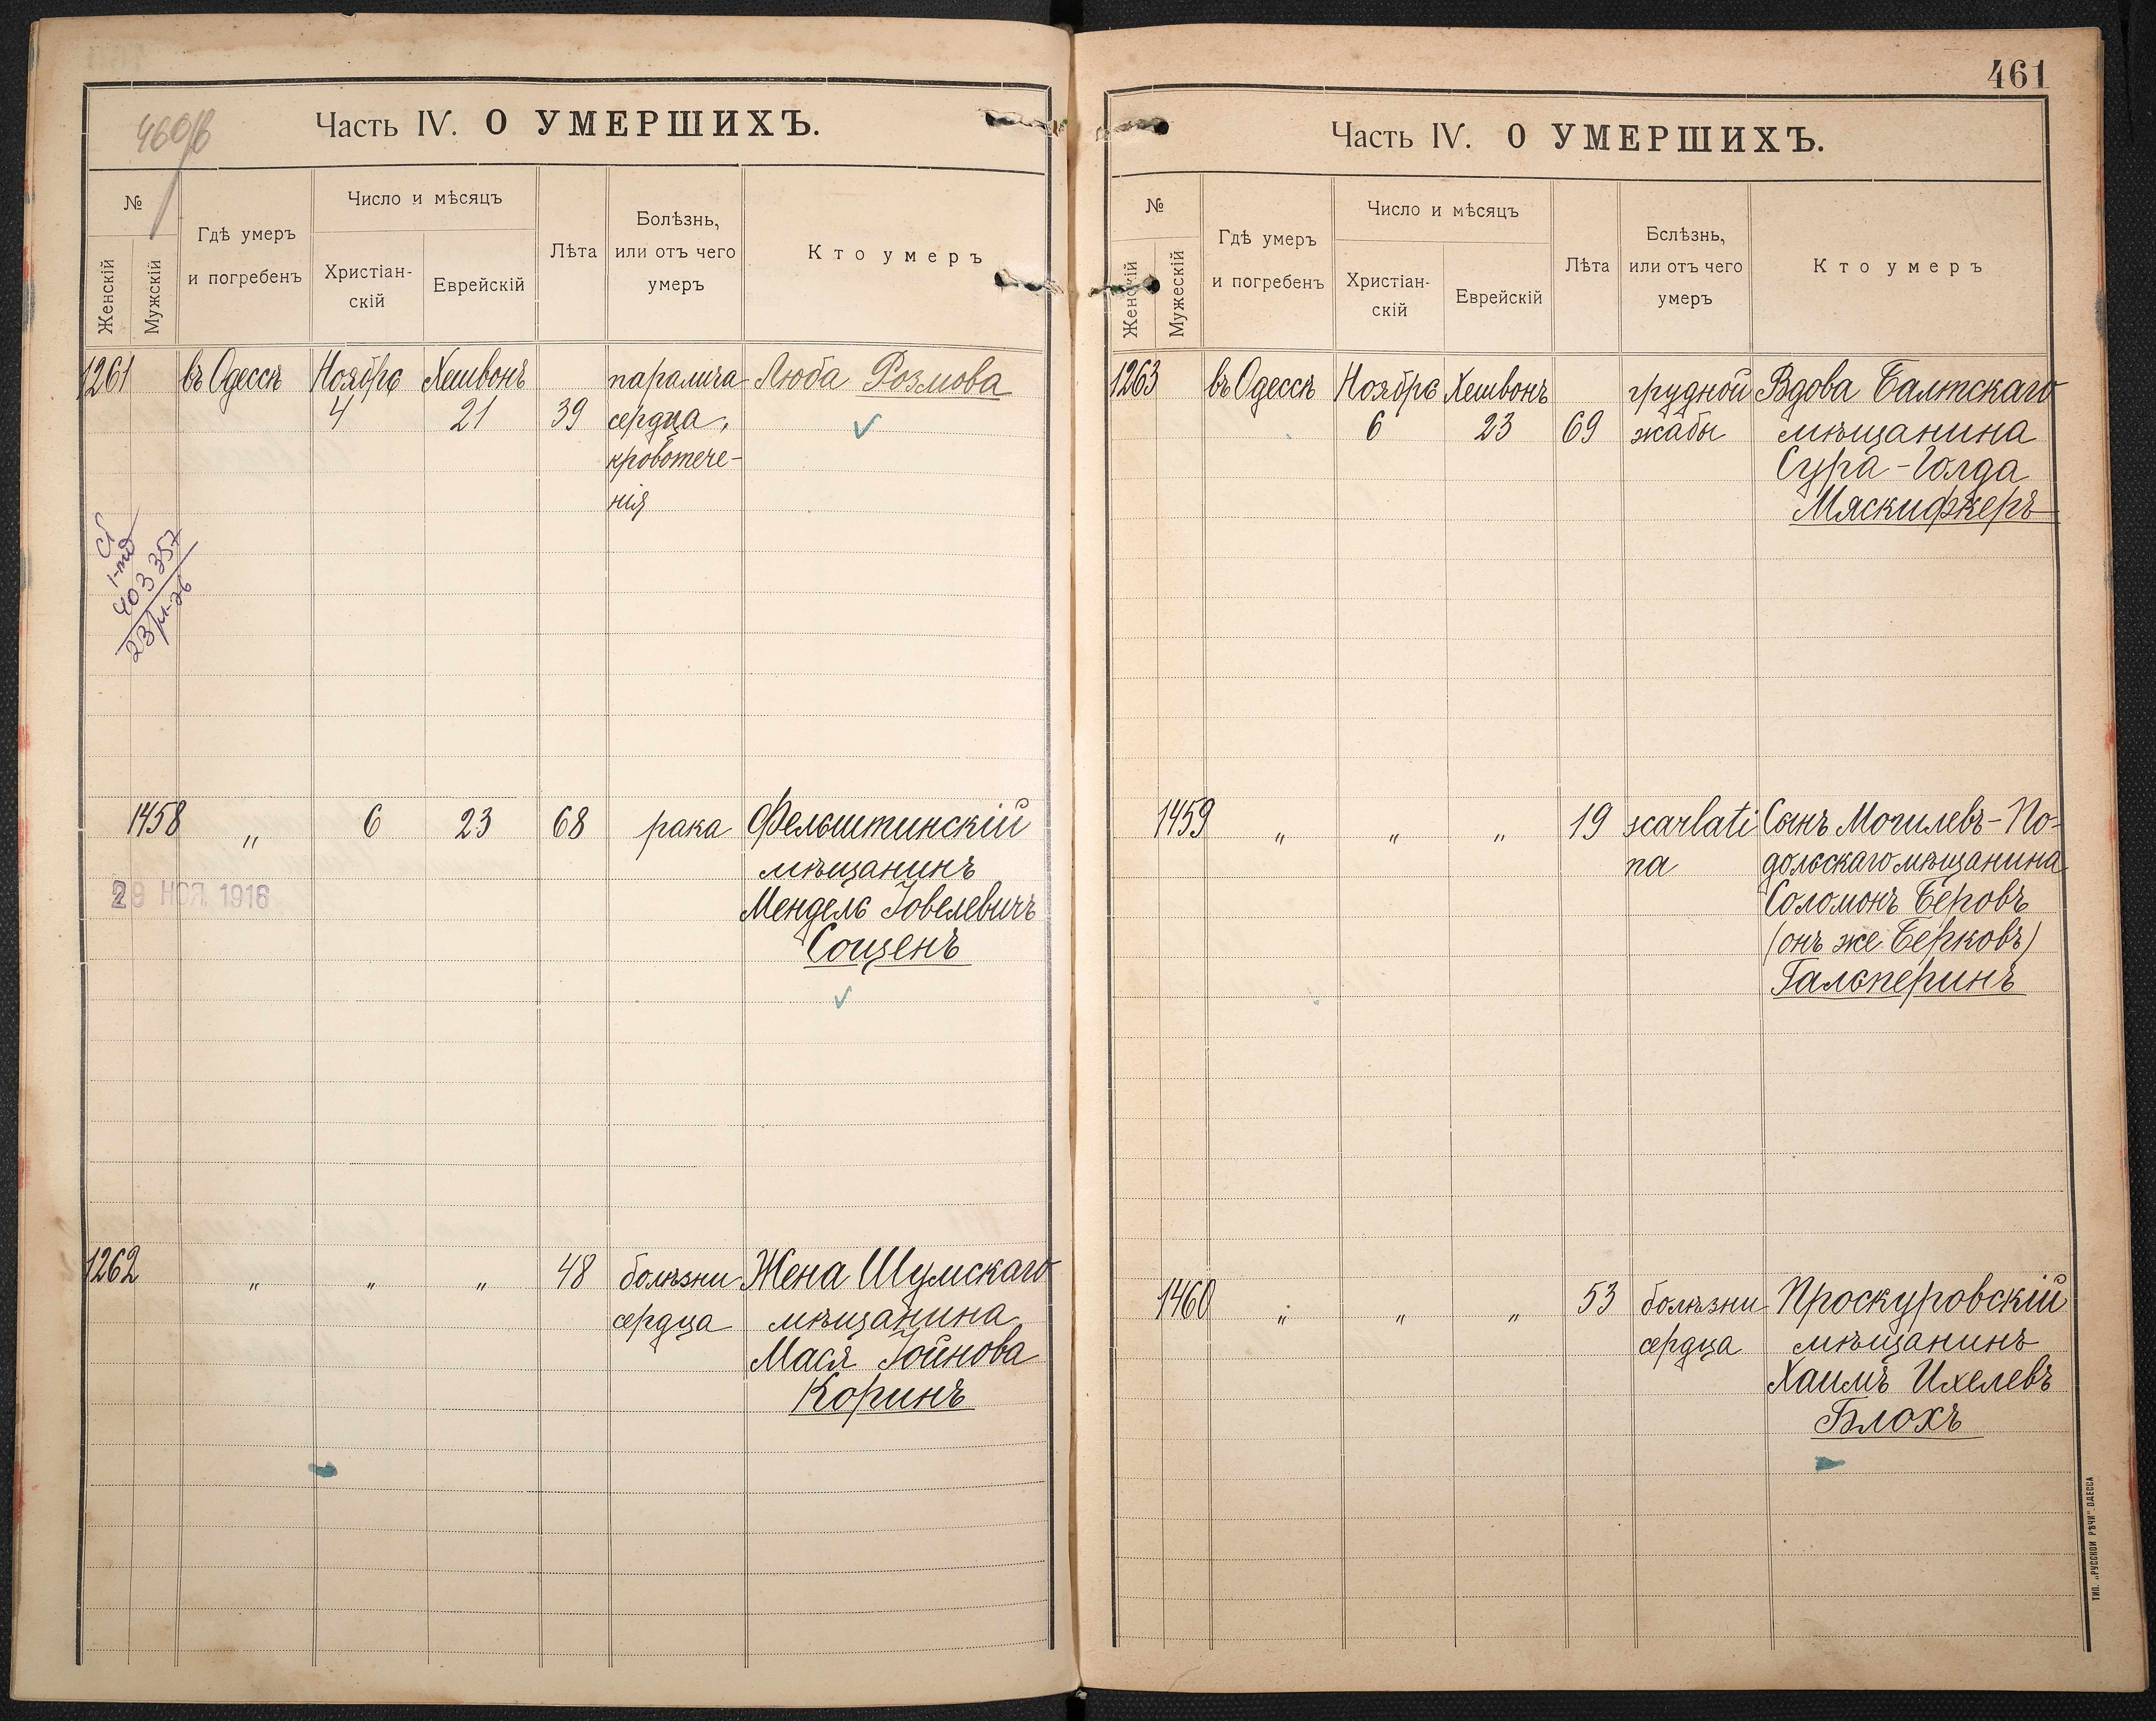 460об
Часть IV. О УМЕРШИХЪ.
№
Женскій
Мужскій
Гдѣ умеръ
и погребенъ
Число и мѣсяцъ
Христіан-
скій
Еврейскій
Лѣта
Болѣзнь,
или отъ чего
умеръ
Кто умеръ
1261 въ Одессѣ Ноября Хешвонъ паралича Люба Розмова
4 21 39 сердца,
кровотече-
нія
403357
1458 „ 6 23 68 рака Фельштинскій
мѣщанинъ
29 НОЯ. 1916
Мендель Іовелевичъ
Соценъ
1262 „ „ „ 48 болѣзни Жена Шумскаго
сердца мѣщанина
Мася Іойнова
Коринъ
461
Часть IV. О УМЕРШИХЪ.
№
Женскій
Мужескій
Гдѣ умеръ
и погребенъ
Число и мѣсяцъ
Христіан-
скій
Еврейскій
Лѣта
Бслѣзнь,
или отъ чего
умеръ
Кто умеръ
1263 въ Одессѣ Ноября Хешвонъ грудной Вдова Балтскаго
6 23 69 жабы мѣщанина
Сура-Голда
Мяскифкеръ
1459 „ „ „ 19 scarlati Сынъ Могилевъ-По-
na дольскаго мѣщанина
Соломонъ Беровъ
(онъ же Берковъ)
Гальперинъ
1460 „ „ „ 53 болѣзни Проскуровскій
сердца мѣщанинъ
Хаимъ Ихелевъ
Блохъ
ТИП. „РУССКОЙ РѢЧИ“ ОДЕССА